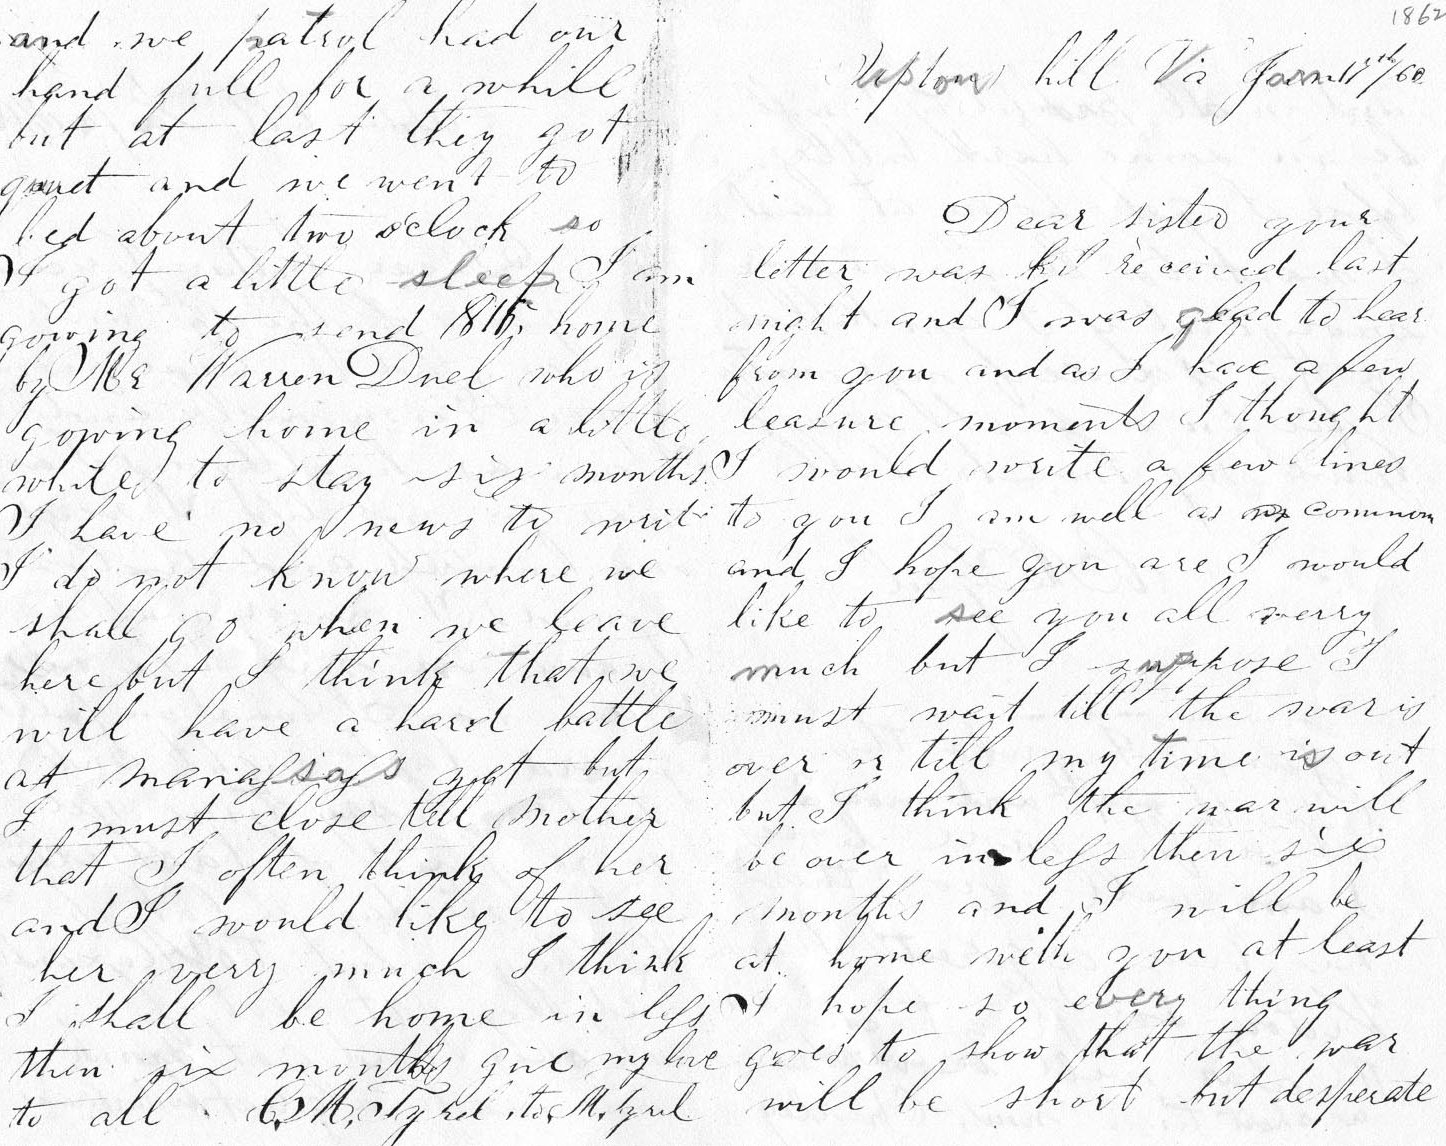 1862
Upton hill Va Jan 17th/6
Dear sister your
letter was received last
night and I was glead to hear
from you and as I have a few
leasure moments I thought
I would write a few lines
to you I am well as common
and I hope you are I would
like to see you all verry
much but I suppose I
must wait till the war is
over or till my time is out
but I think the war will
be over in less then six
months and I will be
at home with you at least
I hope so every thing
goes to show that the war
will be short but desperate
and we patrol had our
hand full for a while
but at last they got
quiet and we went to
bed about two o'clock so
I got a little sleep I am
gowing to send $15, home
by Mr Warren Duel who is
gowing home in a little
while to stay six months
I have no news to write
I do not know where we
shall go when we leave
here but I think that we
will have a hard battle
at manassass yet but
I must close tell mother
that I often think of her
and I would like to see
her verry much I think
I shall be home in less
then six months give my love
to all. C, M, Tyrel to, M, Tyrel